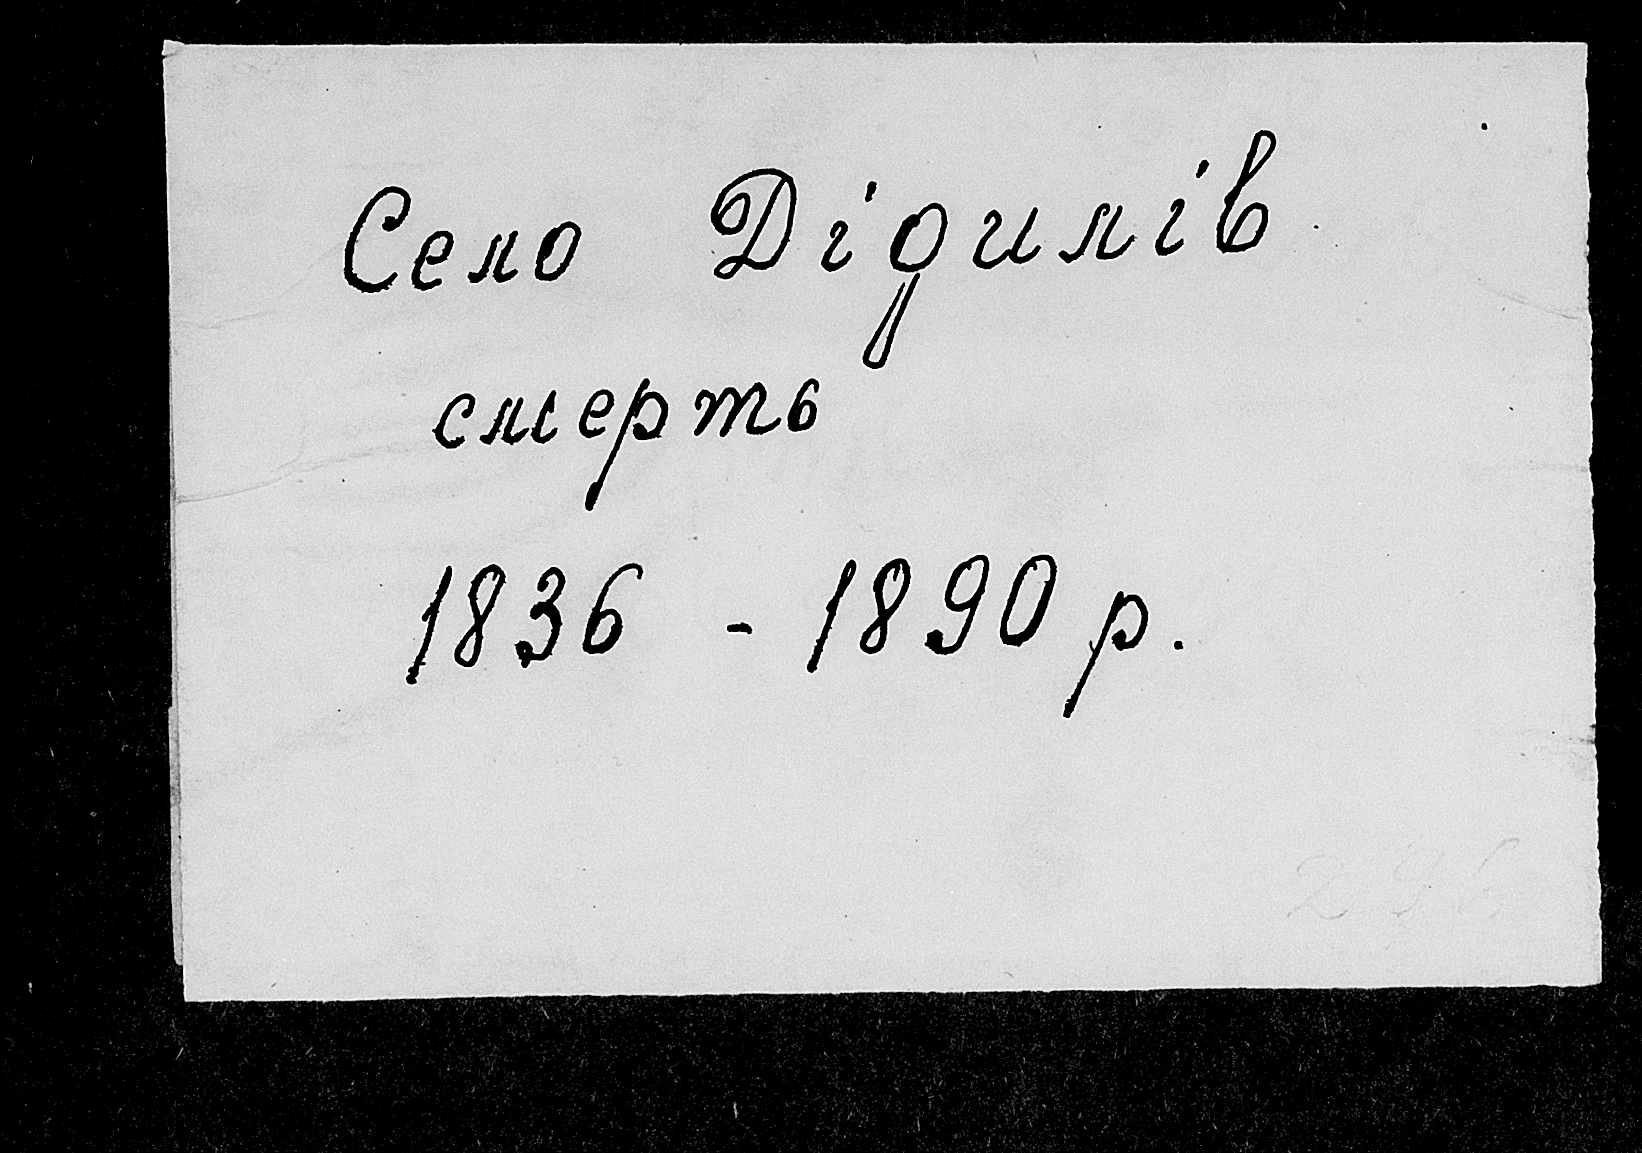 Село Дідилів
смерть
1836 - 1890 р.